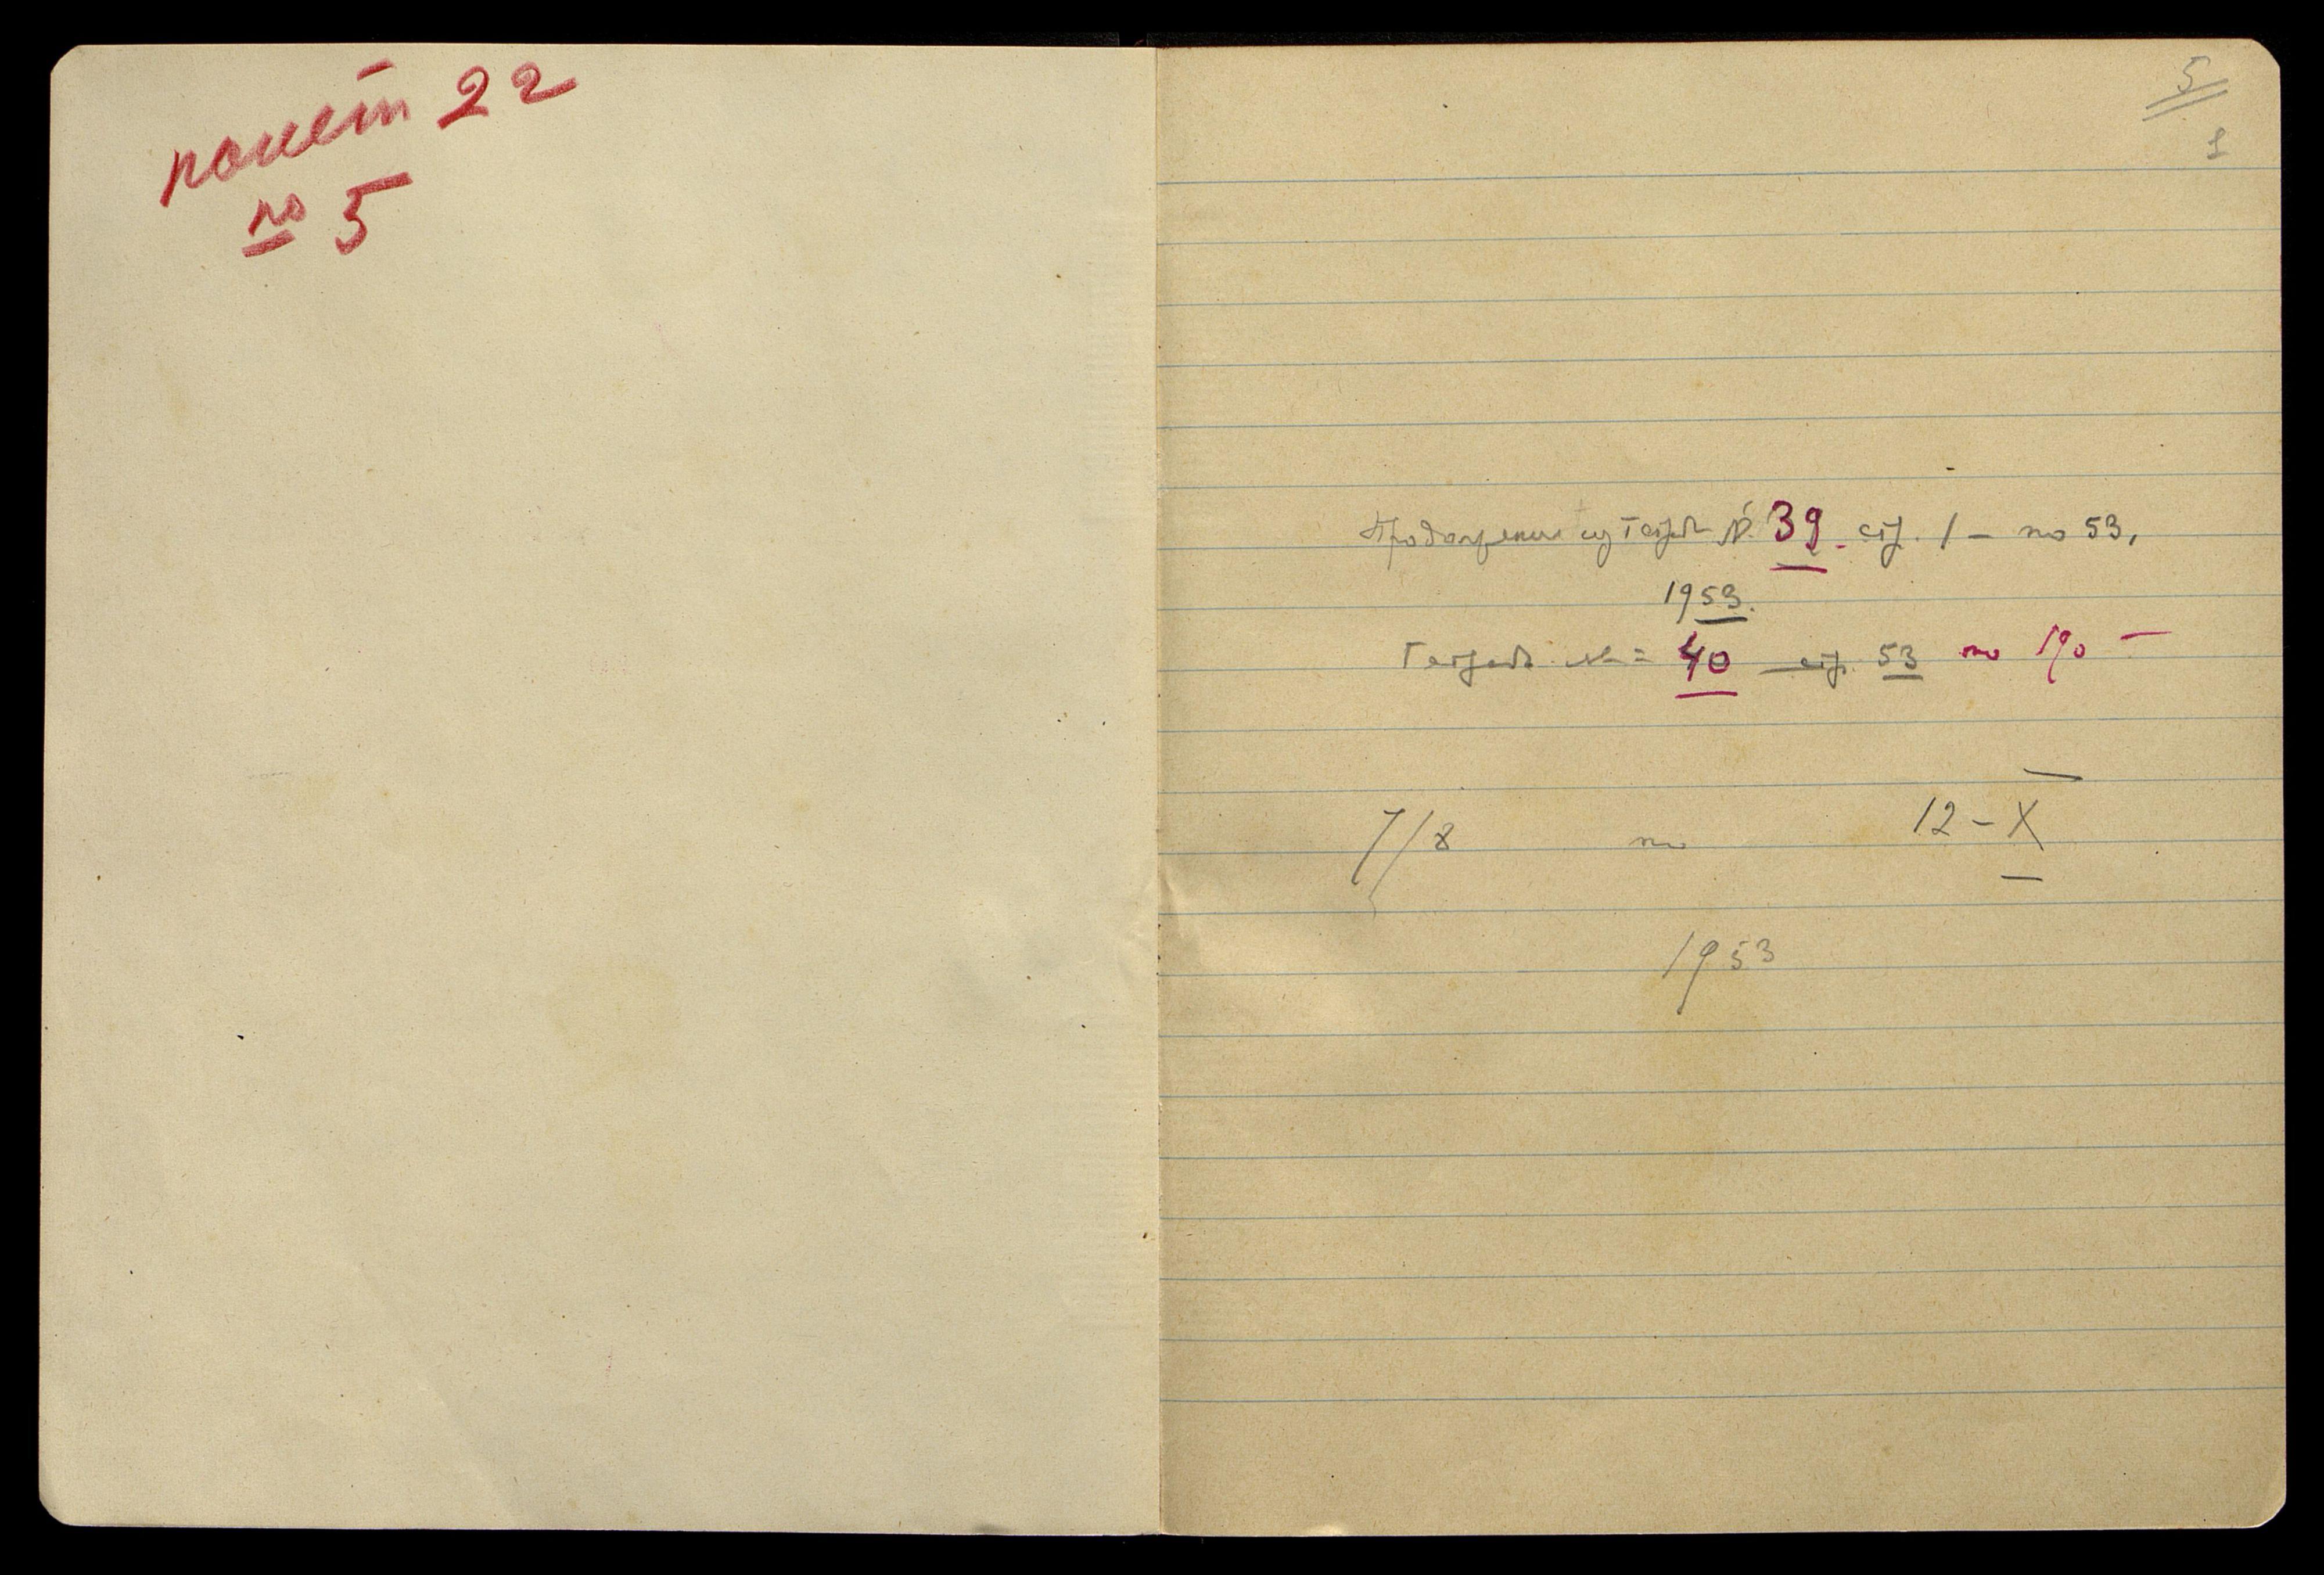 пакет 22
№ 5
5
1
Продолжение из Тетради №. 39 стр. 1 – по 53.
1953.
Тетрадь №= 40 – стр. 53 по 190 –
7/8 по 12 – X
1953